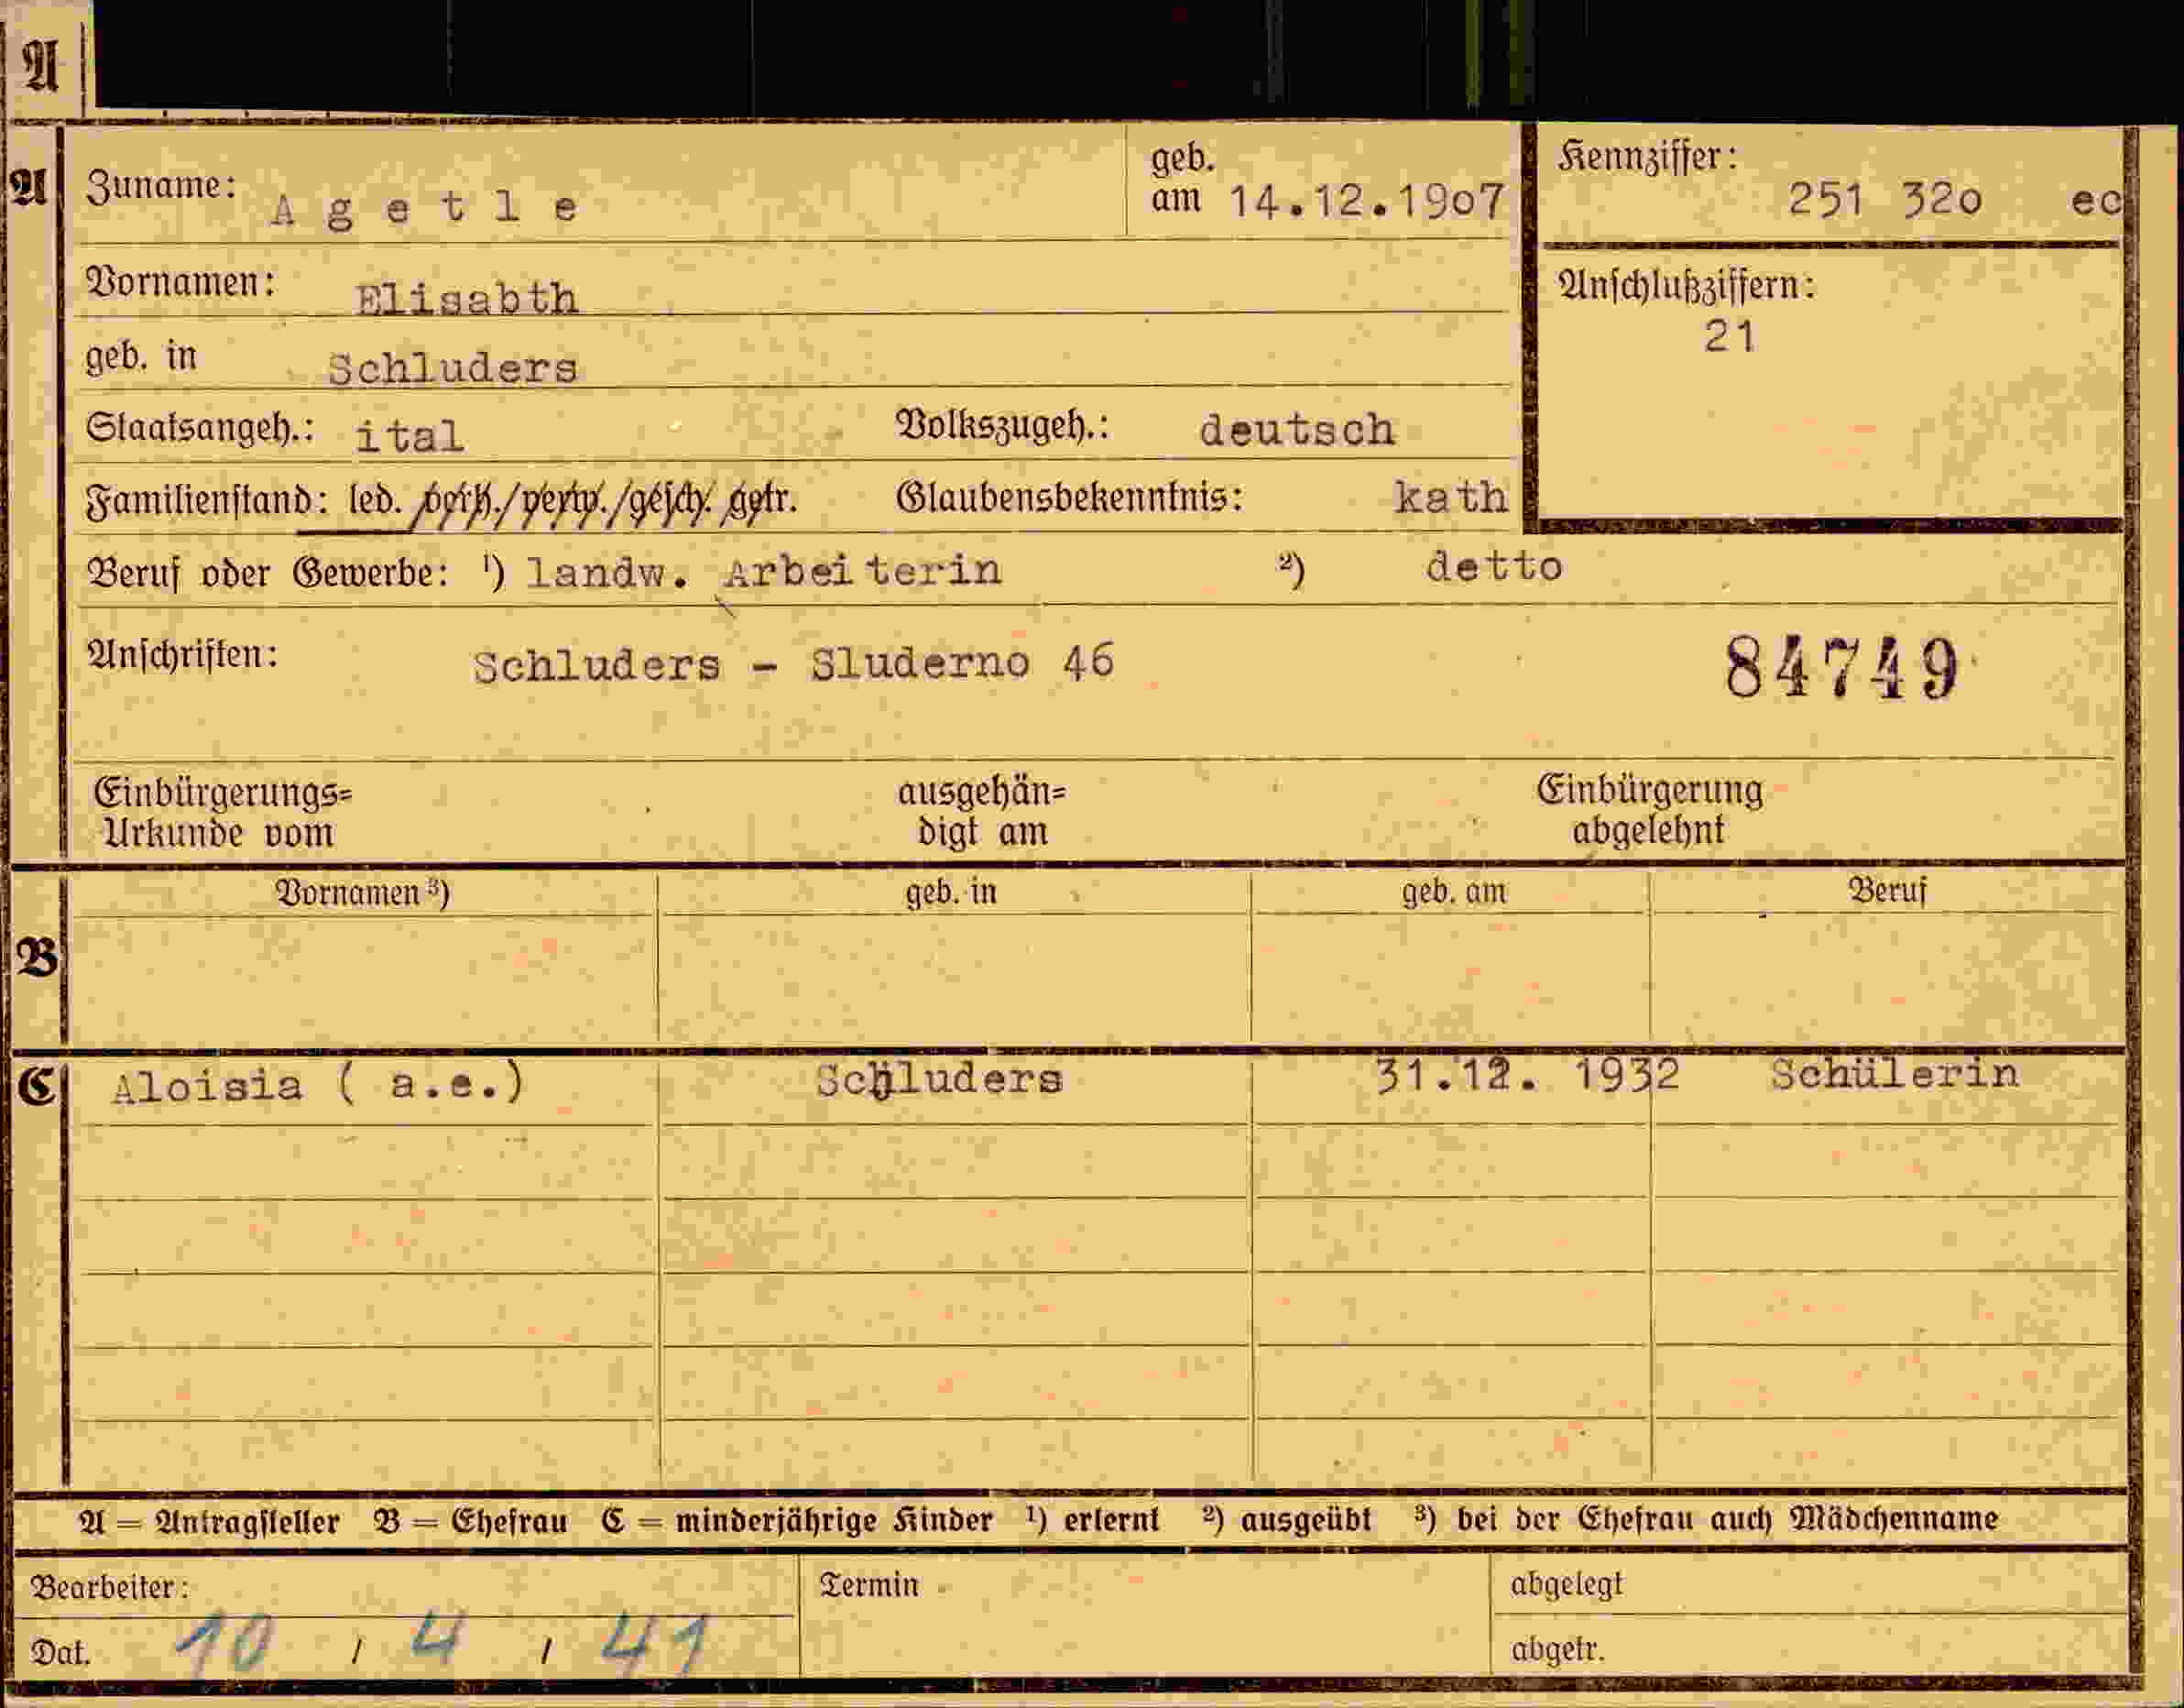 A
A
Zuname: Agetle geb. am 14.12.1907 Kennziffer: 251 320 ec
Vornamen: Elisabth Anschlußziffern: 21
geb. in Schluders
Staatsangeh.: ital Volkszugeh.: deutsch
Familienstand: led. verh./verw./gesch. getr. Glaubensbekenntnis: kath
Beruf oder Gewerbe: ¹) landw. Arbeiterin ²) detto
Anschriften: Schluders - Sluderno 46 84749
Einbürgerungs= ausgehän= Einbürgerung
Urkunde vom digt am abgelehnt
Vornamen ³) geb. in geb. am Beruf
B
C Aloisia ( a.e.) Schluders 31.12. 1932 Schülerin
A = Antragsteller B = Ehefrau C = minderjährige Kinder ¹) erlernt ²) ausgeübt ³) bei der Ehefrau auch Mädchenname
Bearbeiter: Termin abgelegt
Dat. 10 / 4 / 41 abgetr.